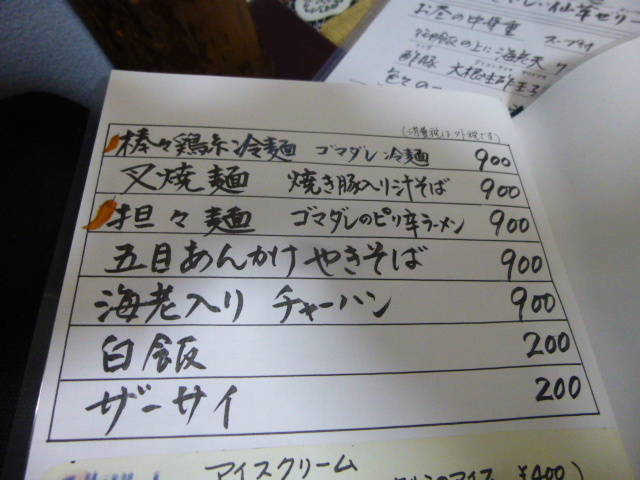 お昼の中身重 スープ付
海老天
酢豚
(消費税は外税です)
棒々鶏糸冷麺 ゴマダレ冷麺 900
叉焼麺 焼き豚入り汁そば 900
担々麺 ゴマダレのピリ辛ラーメン 900
五目あんかけやきそば 900
海老入り チャーハン 900
白飯 200
ザーサイ 200
アイスクリーム
アイス ¥400)